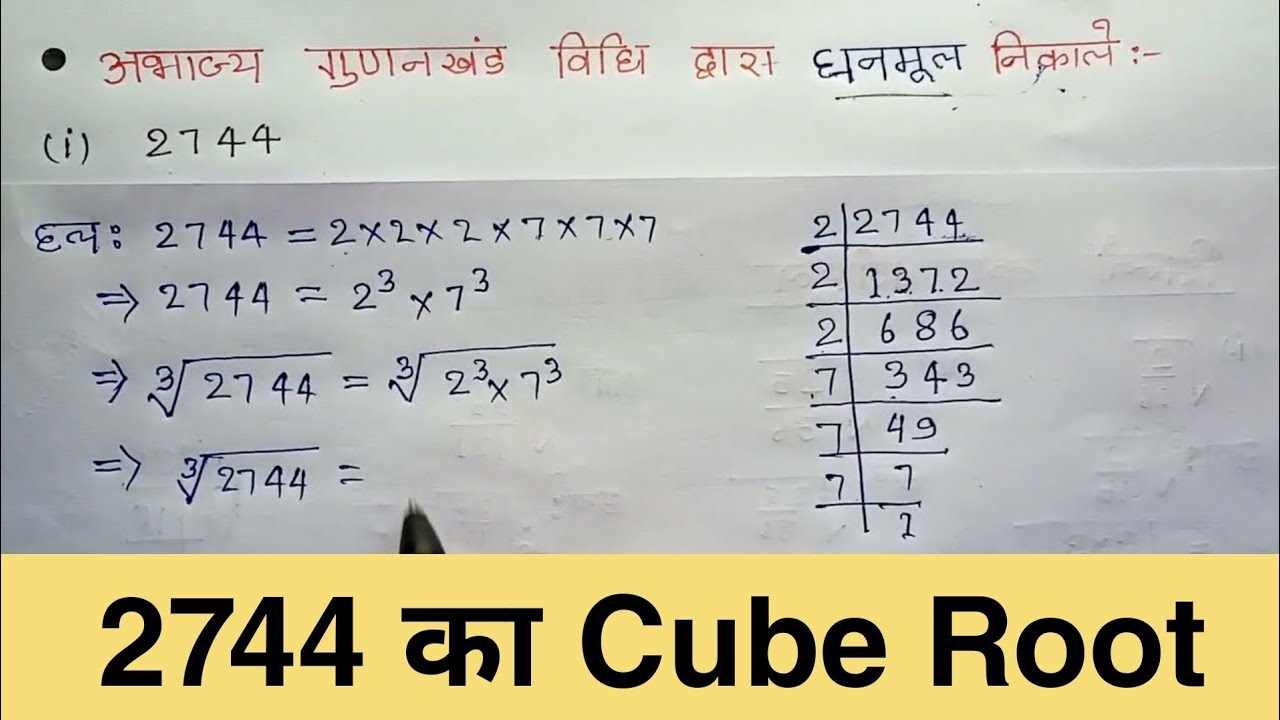 • अभाज्य गुणनखंड विधि द्वारा घनमूल निकाले :-
(i) 2744
हल: 2744 = 2×2×2×7×7×7
⇒ 2744 = 2³ × 7³
⇒ ∛2744 = ∛2³×7³
⇒ ∛2744 =
2 | 2744
2 | 1372
2 | 686
7 | 343
7 | 49
7 | 7
| 1
2744 का Cube Root